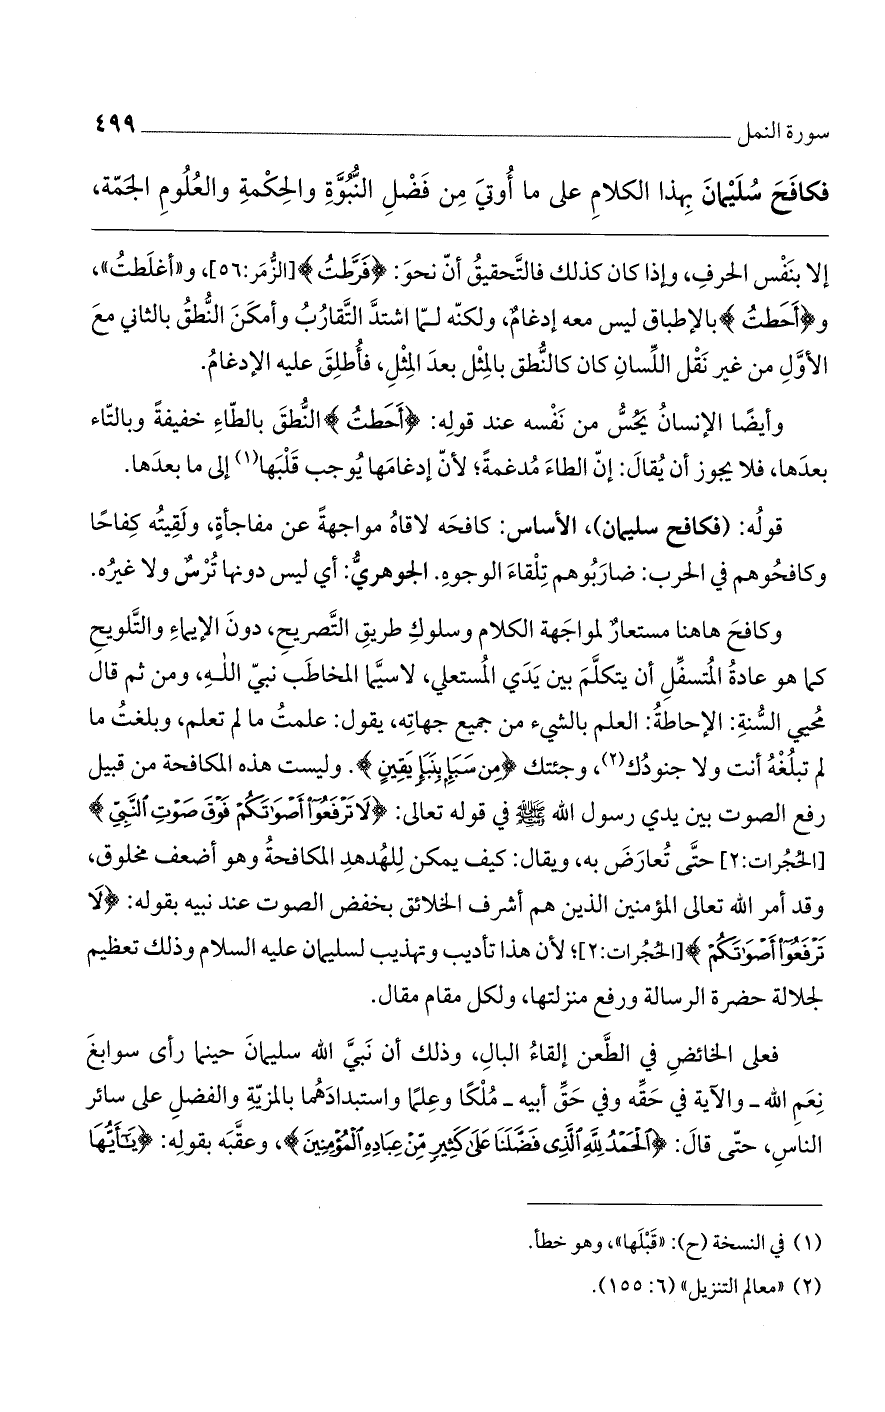 سورة النمل ٤٩٩
فكافَحَ سُلَيْمانَ بِهذا الكلامِ على ما أُوتيَ مِن فَضْلِ النُّبُوَّةِ والحِكْمةِ والعُلُومِ الجَمّة،
إلا بنَفْس الحرفِ، وإذا كان كذلك فالتَّحقيقُ أنّ نحوَ: ﴿فَرَّطتُ﴾[الزُّمَر:٥٦]، و«أغلَطتُ»،
و﴿أَحَطتُ﴾ بالإطباق ليس معه إدغامٌ، ولكنّه لـمّا اشتدَّ التَّقاربُ وأمكَنَ النُّطقُ بالثاني معَ
الأوَّلِ من غير نَقْل اللِّسانِ كان كالنُّطق بالمِثْل بعدَ المِثْل، فأُطلِقَ عليه الإدغامُ.
وأيضًا الإنسانُ يَحُسُّ من نَفْسه عند قولِه: ﴿أَحَطتُ﴾ النُّطقَ بالطّاءِ خفيفةً وبالتّاء
بعدَها، فلا يجوز أن يُقالَ: إنّ الطاءَ مُدغمةً؛ لأنّ إدغامَها يُوجب قَلْبَها(١) إلى ما بعدَها.
قولُه: (فكافح سليمان)، الأساس: كافحَه لاقاهُ مواجهةً عن مفاجأةٍ، ولَقِيتُه كِفاحًا
وكافحُوهم في الحرب: ضارَبُوهم تِلْقاءَ الوجوهِ. الجوهريُّ: أي ليس دونها تُرْسٌ ولا غيرُه.
وكافحَ هاهنا مستعارٌ لمواجَهة الكلام وسلوكِ طريقِ التَّصريح، دونَ الإيماءِ والتَّلويحِ
كما هو عادةُ المُتسفِّلِ أن يتكلَّمَ بين يَدَي المُستعلي، لاسيَّما المخاطَب نبيّ اللهِ، ومن ثم قال
مُحيي السُّنةِ: الإحاطةُ: العلم بالشيء من جميع جهاتِه، يقول: علمتُ ما لم تعلم، وبلغتُ ما
لم تبلُغْهُ أنت ولا جنودُك(٢)، وجئتك ﴿مِن سَبَإٍ بِنَبَإٍ يَقِينٍ﴾. وليست هذه المكافحة من قبيل
رفع الصوت بين يدي رسول الله ﷺ في قوله تعالى: ﴿لَا تَرْفَعُوٓا۟ أَصْوَٰتَكُمْ فَوْقَ صَوْتِ ٱلنَّبِىِّ﴾
[الحُجُرات:٢] حتَّى تُعارَضَ به، ويقال: كيف يمكن لِلهُدهدِ المكافحةُ وهو أضعف مخلوق،
وقد أمر الله تعالى المؤمنين الذين هم أشرف الخلائق بخفض الصوت عند نبيه بقوله: ﴿لَا
تَرْفَعُوٓا۟ أَصْوَٰتَكُمْ﴾[الحُجُرات:٢]؛ لأن هذا تأديب وتهذيب لسليمان عليه السلام وذلك تعظيم
لجلالة حضرة الرسالة ورفع منزلتها، ولكل مقام مقال.
فعلى الخائضِ في الطَّعن إلقاءُ البالِ، وذلك أن نَبيَّ الله سليمانَ حينما رأى سوابغَ
نِعَمِ الله ـ والآية في حَقِّه وفي حَقِّ أبيه ـ مُلْكًا وعِلمًا واستبدادَهُما بالمزيّةِ والفضلِ على سائر
الناسِ، حتّى قالَ: ﴿ٱلْحَمْدُ لِلَّهِ ٱلَّذِى فَضَّلَنَا عَلَىٰ كَثِيرٍ مِّنْ عِبَادِهِ ٱلْمُؤْمِنِينَ﴾، وعقَّبَه بقولِه: ﴿يَٰٓأَيُّهَا
(١) في النسخة (ح): «قَبْلَها»، وهو خطأ.
(٢) «معالم التنزيل» (٦: ١٥٥).